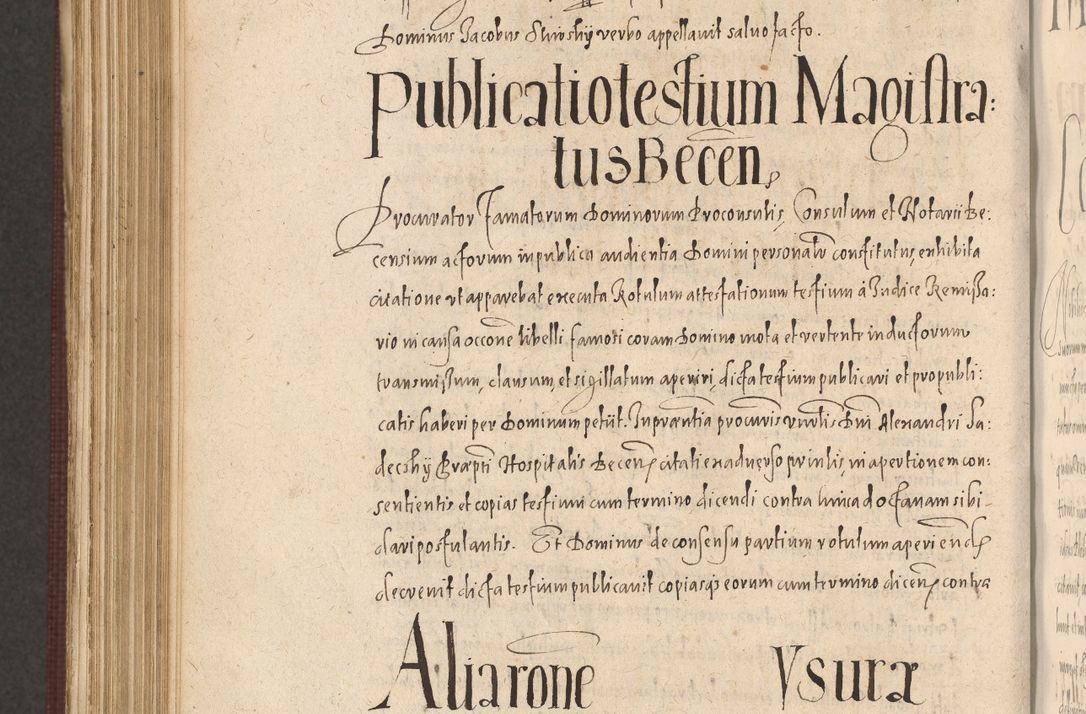 Dominus Jacobus Sliwskÿ verbo appellavit salvo facto.
Publicatio testium Magistra:
tus Becen̄
Procurator famatorum Dominorum Proconsulis, Consulum et Notarii Be:
censium actorum in publica audientia Domini personalr̄ constitutus, exhibita
citatione ut apparebat executa Rotulum attestationum testium à Judice Remissa:
rio in causa occōne libelli famosi coram Domino mota et vertente inductorum
transmissum, clausum, et sigillatum aperiri, dicta testium publicari et pro publi:
catis haberi per Dominum petiit. In præntia procuris Dni Alexandri Sa:
deckÿ Præpti Hospitalis Becen̄ citati ex adverso in apertionem con:
sentientis et copias testium cum termino dicendi contra ad octanam sibi
dari postulantis. Et Dominus de consensu partium rotulum aperiend
decrevit dicta testium publicavit copiasq̃ eorum cum termino dicen̄ contra
Alia rōne
Ysuræ